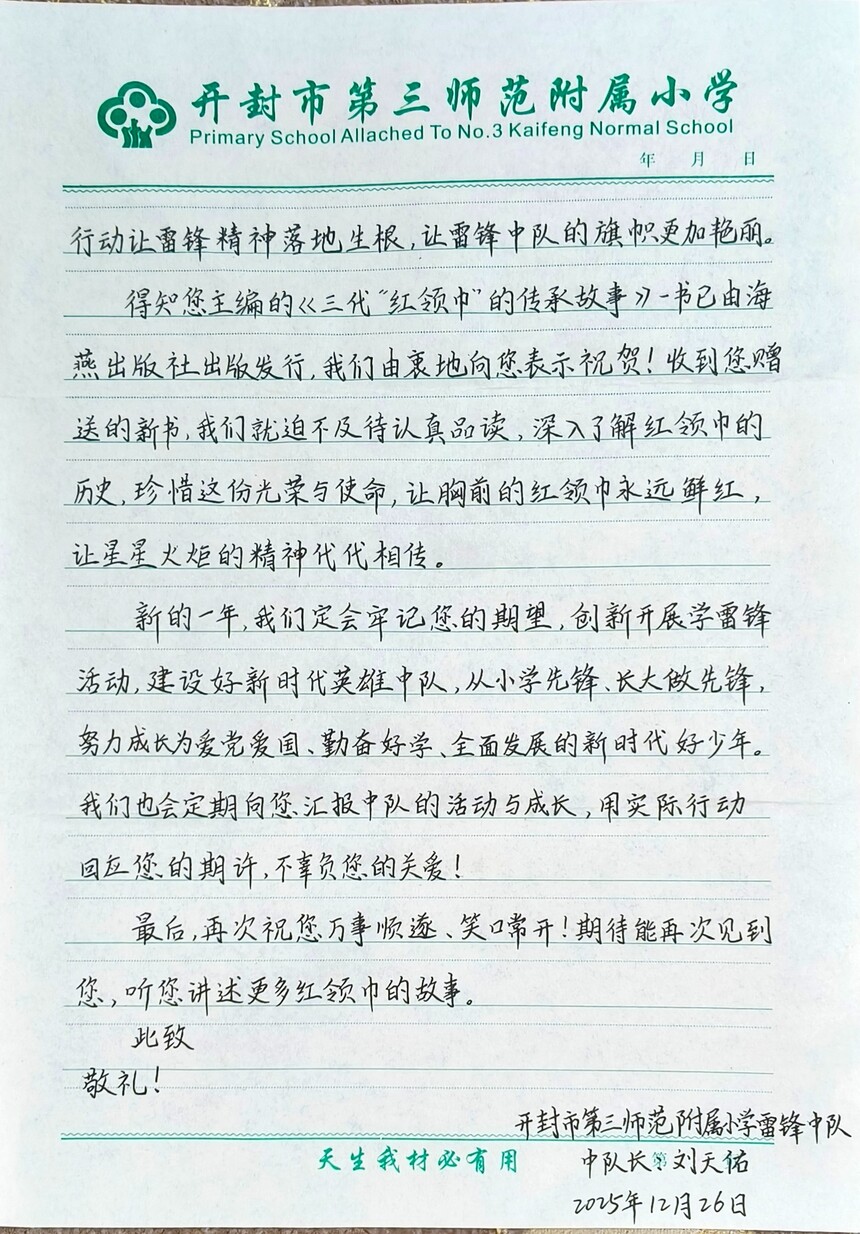 开封市第三师范附属小学
Primary School Allached To No.3 Kaifeng Normal School
年 月 日
行动让雷锋精神落地生根,让雷锋中队的旗帜更加艳丽。
得知您主编的《三代“红领巾”的传承故事》一书已由海
燕出版社出版发行,我们由衷地向您表示祝贺!收到您赠
送的新书,我们就迫不及待认真品读,深入了解红领巾的
历史,珍惜这份光荣与使命,让胸前的红领巾永远鲜红,
让星星火炬的精神代代相传。
新的一年,我们定会牢记您的期望,创新开展学雷锋
活动,建设好新时代英雄中队,从小学先锋、长大做先锋,
努力成长为爱党爱国、勤奋好学、全面发展的新时代好少年。
我们也会定期向您汇报中队的活动与成长,用实际行动
回应您的期许,不辜负您的关爱!
最后,再次祝您万事顺遂、笑口常开!期待能再次见到
您,听您讲述更多红领巾的故事。
此致
敬礼!
开封市第三师范附属小学雷锋中队
天生我材必有用 第
中队长:刘天佑
2025年12月26日